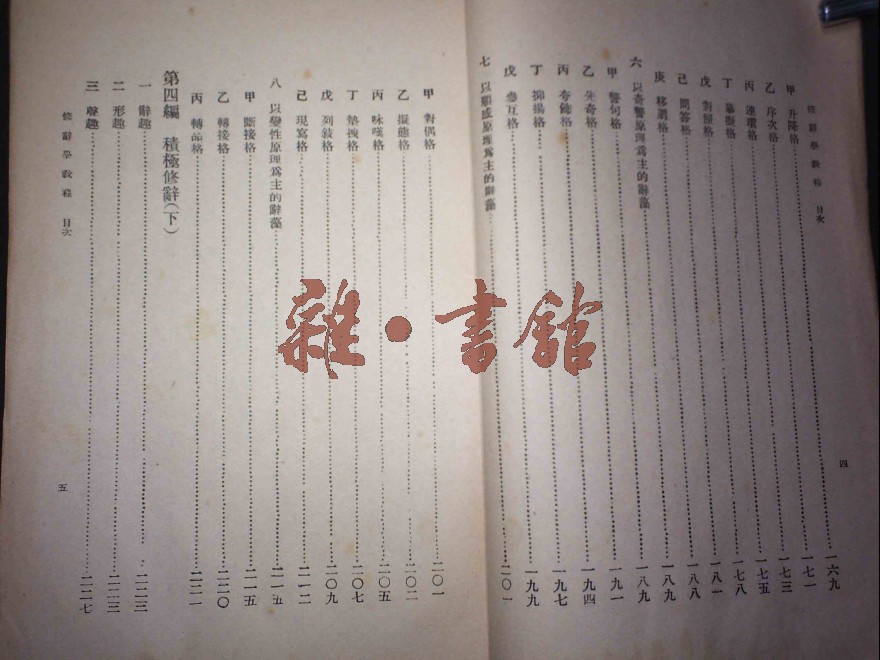 修辭學敎程 目次
甲 升降格 一六九
乙 序次格 一七一
丙 連環格 一七三
丁 摹擬格 一七五
戊 對照格 一七八
己 問答格 一八一
庚 格 一八八
六 以奇警原理爲主的辭藻 一八九
甲 警句格 一八九
乙 格 一九一
丙 奇飾格 一九四
丁 抑揚格 一九七
戊 參互格 一九九
七 以順感原理爲主的辭藻 二〇一
四
甲 對偶格 二〇一
乙 擬態格 二〇二
丙 咏嘆格 二〇五
丁 墊拽格 二〇七
戊 列敍格 二〇九
己 現寫格 二一二
八 以變性原理爲主的辭藻 二一五
甲 斷接格 二一五
乙 轉接格 二二〇
丙 轉品格 二二一
第四編 積極修辭(下)
一 辭趣 二二三
二 形趣 二二三
三 聲趣 二二七
修辭學敎程 目次
五
雜·書館